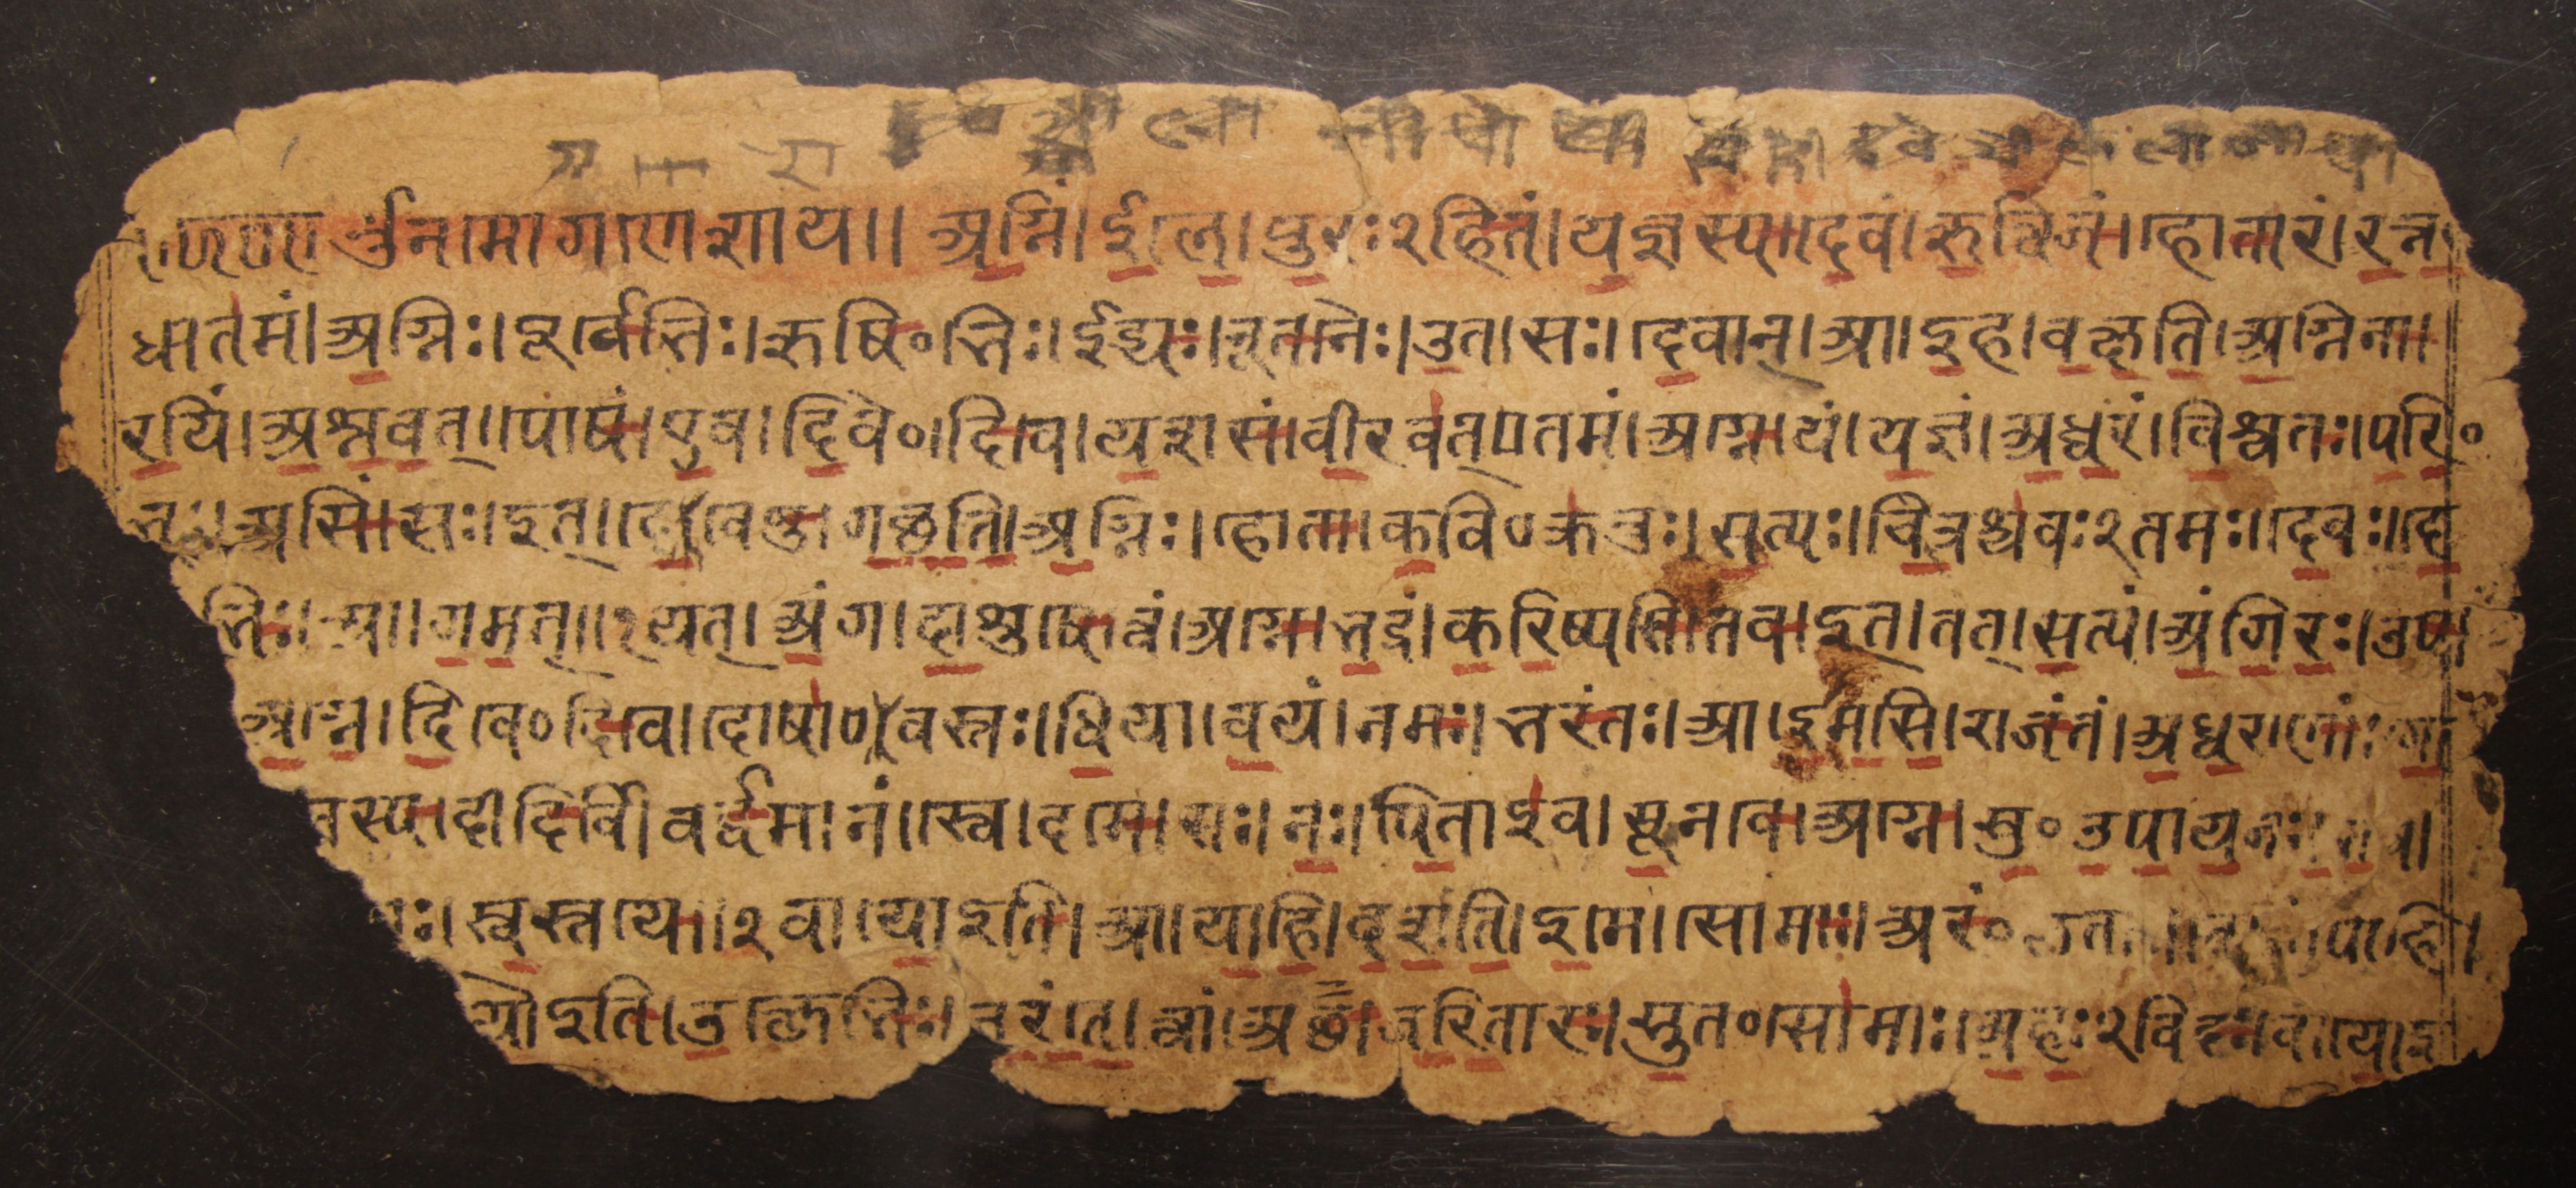 र्श्रुनमोगणेशाय॥ अग्निं।ईले।पुरः२हितं।यज्ञस्य।देवं।ऋत्विजं।होतारं।रत्न
धातमं।अग्निः।पूर्वेभिः।ऋषि॰भिः।ईड्यः।नूतनैः।उत।सः।देवान्।आ।इह।वक्षति।अग्निना।
रयिं।अश्नवत्।पोषं।एव।दिवे॰दिवे।यशसं।वीरवत्ऽतमं।अग्ने।यं।यज्ञं।अध्वरं।विश्वतः।परि॰
भूः।असि।सः।इत्।देवेषु।गछति।अग्निः।होता।कवि॰क्रतुः।सत्यः।चित्रश्रवः२तमः।देवः।दे
भिः।आ।गमत्॥१यत्।अंग।दाशुषे।त्वं।अग्ने।भद्रं।करिष्यसि।तव।इत्।तत्।सत्यं।अंगिरः।उप।
अग्ने।दिवे॰दिवे।दोषा॰वस्तः।धिया।वयं।नमः।भरंतः।आ।इमसि।राजंतं।अध्वराणां।गो
तस्य।दीदिविं।वर्द्धमानं।स्वे।दमे।सः।नः।पिताइव।सूनवे।अग्ने।सु॰उपायनः।भव।
नः।स्वस्तये॥२वायोइति।आ।याहि।दर्शति।इमे।सोमाः।अरं॰कृताः।तेषां।पाहि।
योइति।उक्थेभिः।जरंते।त्वां।अछ।जरितारः।सुत॰सोमाः।अहः२विदः।वायोइ